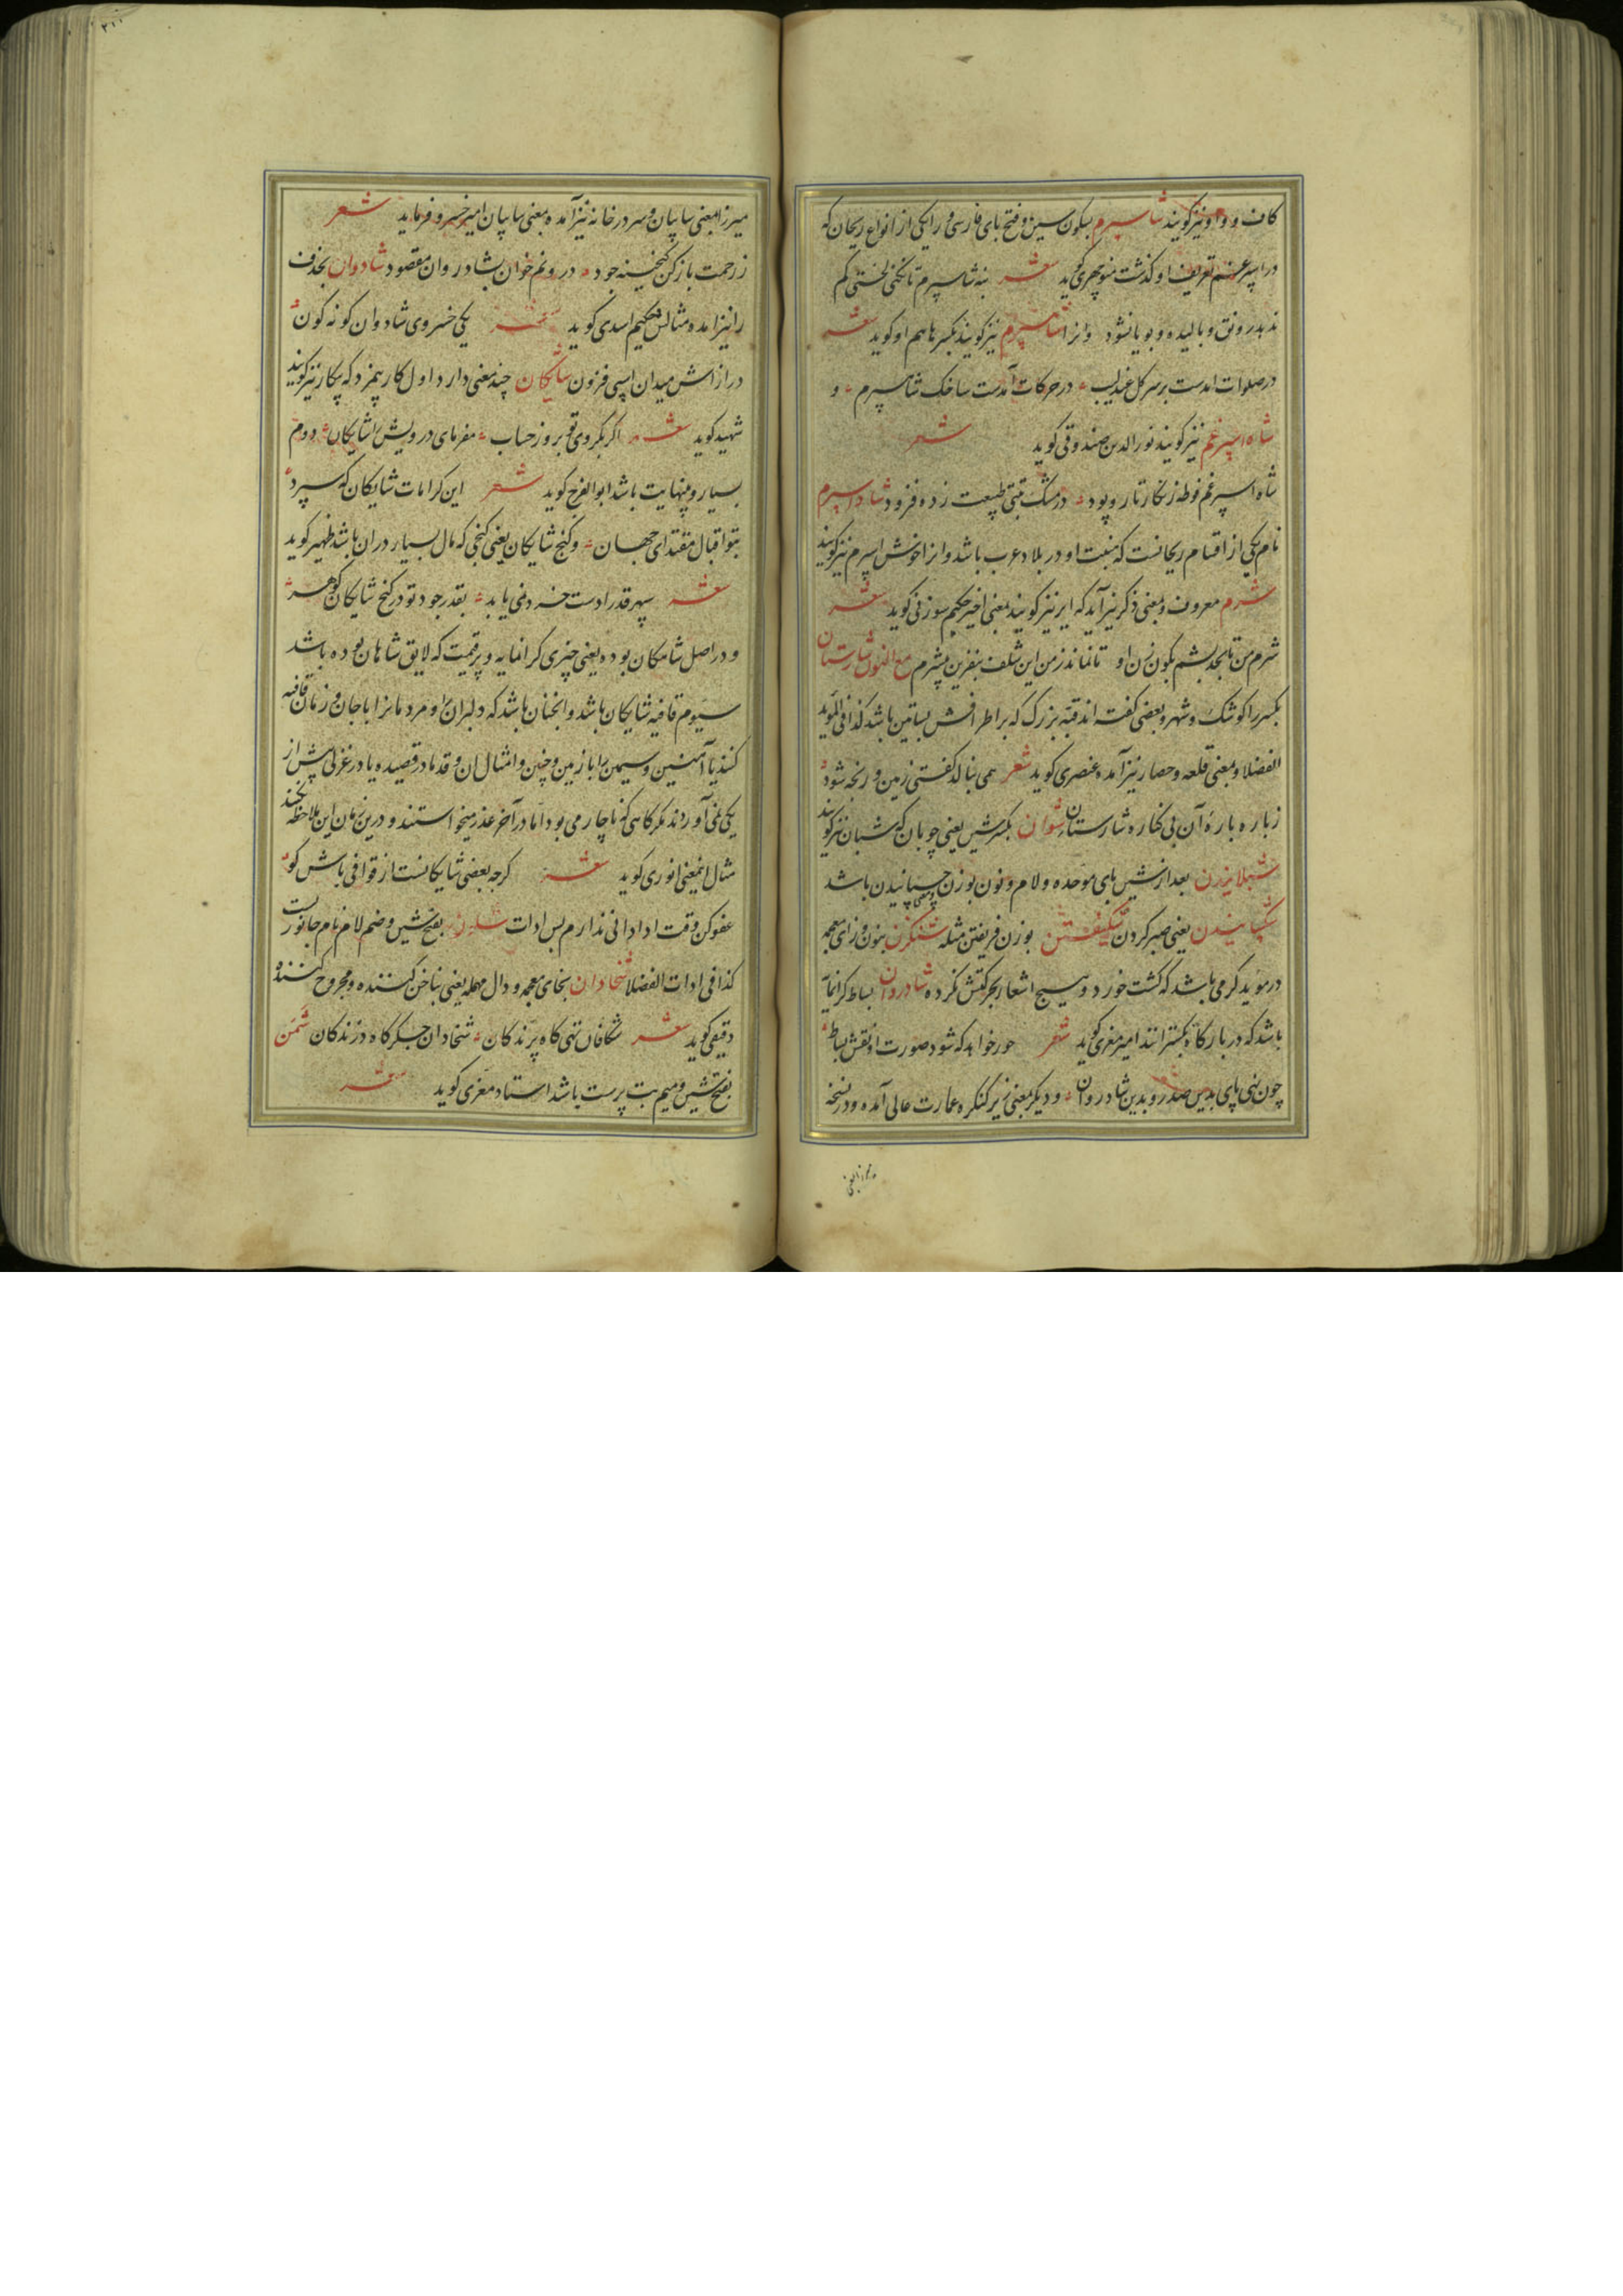 کاف و واو نیز گویند شاسپرم بسکون سین و فتح بای فارسی و را یکی از انواع ریحان که
در اسپرغم تعریف او گذشت منوچهری گوید شعر بنه شاسپرم تا نکنی لختی کم
ندهد رونق و بالیده و بویا نشود و انرا شاهسپرم نیز گویند بکسر ها هم او گوید شعر
در صلوات امدست بر سر گل عندلیب در حرکات آمدست ساخک شاسپرم و
شاه اسپرغم نیز گویند نورالدین صندوقی گوید شعر
شاه اسپرغم فوطه زنگار تار و پود در مشک تبتی طبیعت زده فزود شاداسپرم
نام یکی از اقسام ریحانست که منبت او در بلاد عرب باشد و انرا خوش اسپرم نیز گویند
شرم معروف و بمعنی ذکر نیز آید که ایر نیز گویند بمعنی اخیر حکیم سوزنی گوید شعر
شرم من تا بجد بشم بکون زن او تا نماند ز من این شلف بنفرین بشرم مع النون شارستان
بکسر را کوشک و شهر و بعضی گفته اند قبه بزرگ که بر اطرافش بساتین باشد کذا فی الموید
الفضلا و بمعنی قلعه و حصار نیز آمده عنصری گوید شعر همی بنالد گفتی زمین و رنجه شود
ز باره باره آن بی کناره شارستان شوان بکسر شین یعنی چوپان که شبان نیز گویند
شبلانیدن بعد از شین بای موحده و لام و نون بوزن و معنی چسپانیدن باشد
شکیبانیدن یعنی صبر کردن شکیفتن بوزن فریفتن مثله شنگرن بنون و زای معجمه
در موید کرمی باشد که کشت خورد و هیچ اشعار بحرکتش نکرده شادروان بساط گرانمایه
باشد که در بارگاه بگسترانند امیر معزی گوید شعر حور خواهد که شود صورت او نقش بساط
چون نهی پای بدین صدر و بدین شادروان و دیگر بمعنی زیر کنگره عمارت عالی آمده و در نسخه
میرزا بمعنی
۳۱۱
میرزا بمعنی سایبان و سردر خانه نیز آمده بمعنی سایبان امیر خسرو فرماید شعر
ز رحمت باز کن گنجینه جود درونم خوان بشادروان مقصود شادوان بحذف
را نیز امده مثالش حکیم اسدی گوید شعر یکی خسروی شادوان گونه گون
درازاش میدان اسپی فزون شایگان چند معنی دارد اول کار بیمزد که بیکار نیز گویند
شهید گوید شعر اگر بگروی تو بروز حساب مفرمای درویش را شایگان دوم
بسیار و بینهایت باشد ابوالفرج گوید شعر این کرامات شایگان که سپرد
بتو اقبال مقتدای جهان و گنج شایگان یعنی گنجی که مال بسیار در ان باشد ظهیر گوید
شعر سپهر قدرا دست خرد نمی یابد بقدر جود تو در گنج شایگان گوهر
و در اصل شاهگان بوده یعنی چیزی گرانمایه و پر قیمت که لایق شاهان بوده باشد
سیوم قافیه شایگان باشد و انچنان باشد که دلبران را و مردمانرا با جان و زمان قافیه
کنند یا آهنین و سیمین را با زمین و چنین و امثال ان و قدما در قصیده یا در غزلی پیش از
یکی نمی آوردند مگر گاهی که ناچار می بود اما در آخر عذر میخواستند و درین زمان این ملاحظه نکنند
مثال اینمعنی انوری گوید شعر گرچه بعضی شایگانست از قوافی باش گو
عفو کن وقت ادا دانی ندارم بس ادات بفتح شین و ضم لام نام جانوریست
کذا فی ادات الفضلا شخادان بخای معجمه و دال مهمله یعنی بناخن کننده و مجروح کننده
دقیقی گوید شعر شکافان تهی گاه پرندگان شخادان جگرگاه درندگان شمن
بفتح شین و میم بت پرست باشد استاد معزی گوید شعر